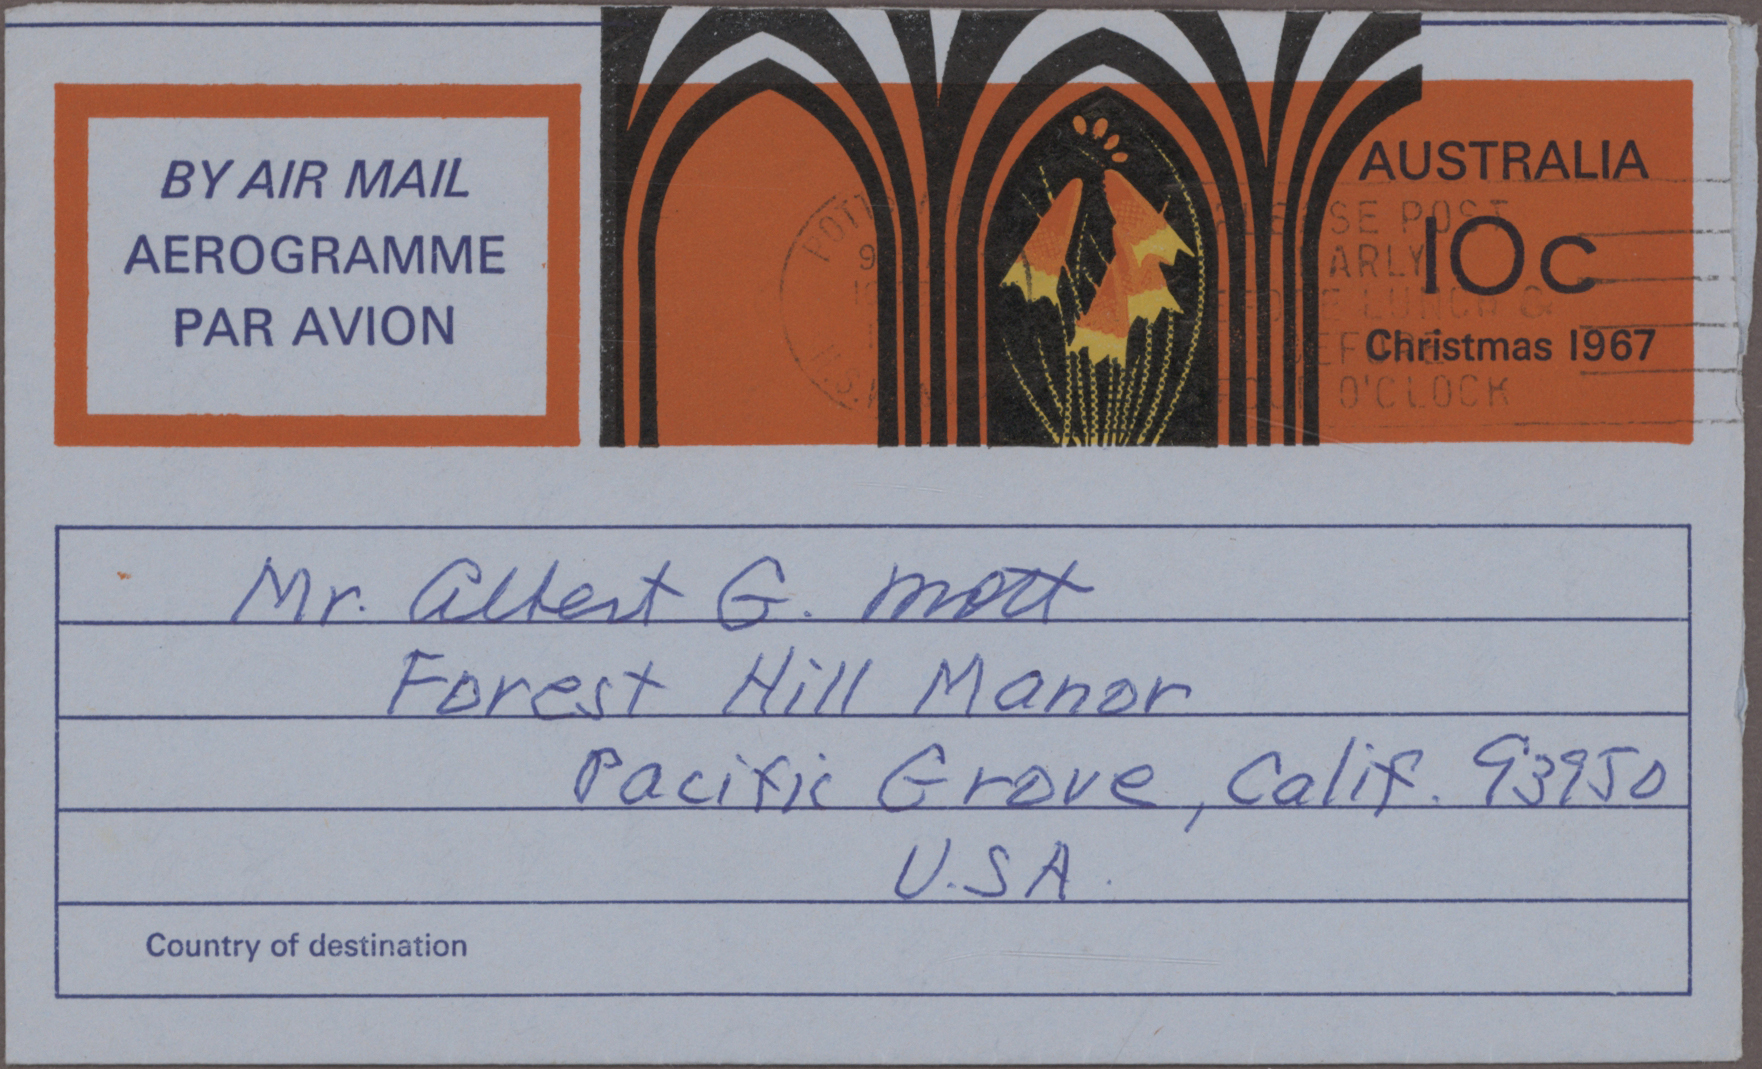 BY AIR MAIL
AEROGRAMME
PAR AVION
AUSTRALIA
10c
Christmas 1967
POST
ARLY
LUNCH &
O'CLOCK
Mr. Albert G. Mott
Forest Hill Manor
Pacific Grove, Calif. 93950
U.S.A.
Country of destination